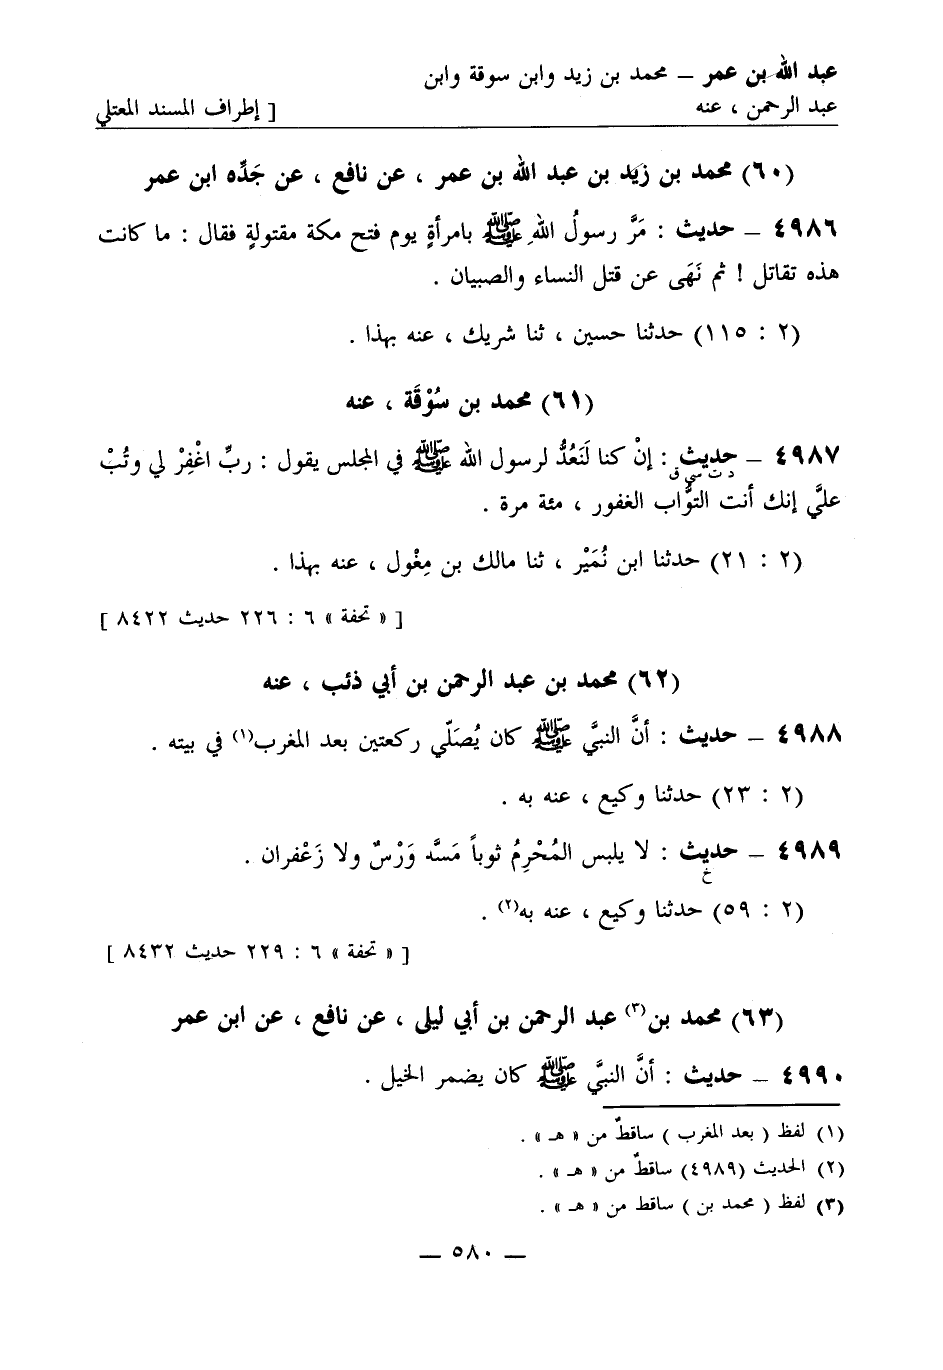 عبد الله بن عمر – محمد بن زيد وابن سوقة وابن
عبد الرحمن ، عنه [ إطراف المسند المعتلي
(٦٠) محمد بن زيد بن عبد الله بن عمر ، عن نافع ، عن جَدِّه ابن عمر
٤٩٨٦ – حديث : مَرَّ رسولُ اللهِ ﷺ بامرأةٍ يوم فتح مكة مقتولةٍ فقال : ما كانت
هذه تقاتل ! ثم نَهَى عن قتل النساء والصبيان .
(٢ : ١١٥) حدثنا حسين ، ثنا شريك ، عنه بهذا .
(٦١) محمد بن سُوْقَة ، عنه
٤٩٨٧ – حديث : إنْ كنا لَنَعُدُّ لرسول الله ﷺ في المجلس يقول : ربِّ اغْفِرْ لي وتُبْ
د ت سي ق
عليَّ إنك أنت التوَّاب الغفور ، مئة مرة .
(٢ : ٢١) حدثنا ابن نُمَيْر ، ثنا مالك بن مِغْول ، عنه بهذا .
[ « تحفة » ٦ : ٢٢٦ حديث ٨٤٢٢ ]
(٦٢) محمد بن عبد الرحمن بن أبي ذئب ، عنه
٤٩٨٨ – حديث : أنَّ النبيَّ ﷺ كان يُصَلّي ركعتين بعد المغرب(١) في بيته .
(٢ : ٢٣) حدثنا وكيع ، عنه به .
٤٩٨٩ – حديث : لا يلبس المُحْرِمُ ثوباً مَسَّه وَرْسٌ ولا زَعْفران .
خ
(٢ : ٥٩) حدثنا وكيع ، عنه به(٢) .
[ « تحفة » ٦ : ٢٢٩ حديث ٨٤٣٢ ]
(٦٣) محمد بن(٣) عبد الرحمن بن أبي ليلى ، عن نافع ، عن ابن عمر
٤٩٩٠ – حديث : أنَّ النبيَّ ﷺ كان يضمر الخيل .
(١) لفظ ( بعد المغرب ) ساقطٌ من « هـ » .
(٢) الحديث (٤٩٨٩) ساقطٌ من « هـ » .
(٣) لفظ ( محمد بن ) ساقط من « هـ » .
— ٥٨٠ —